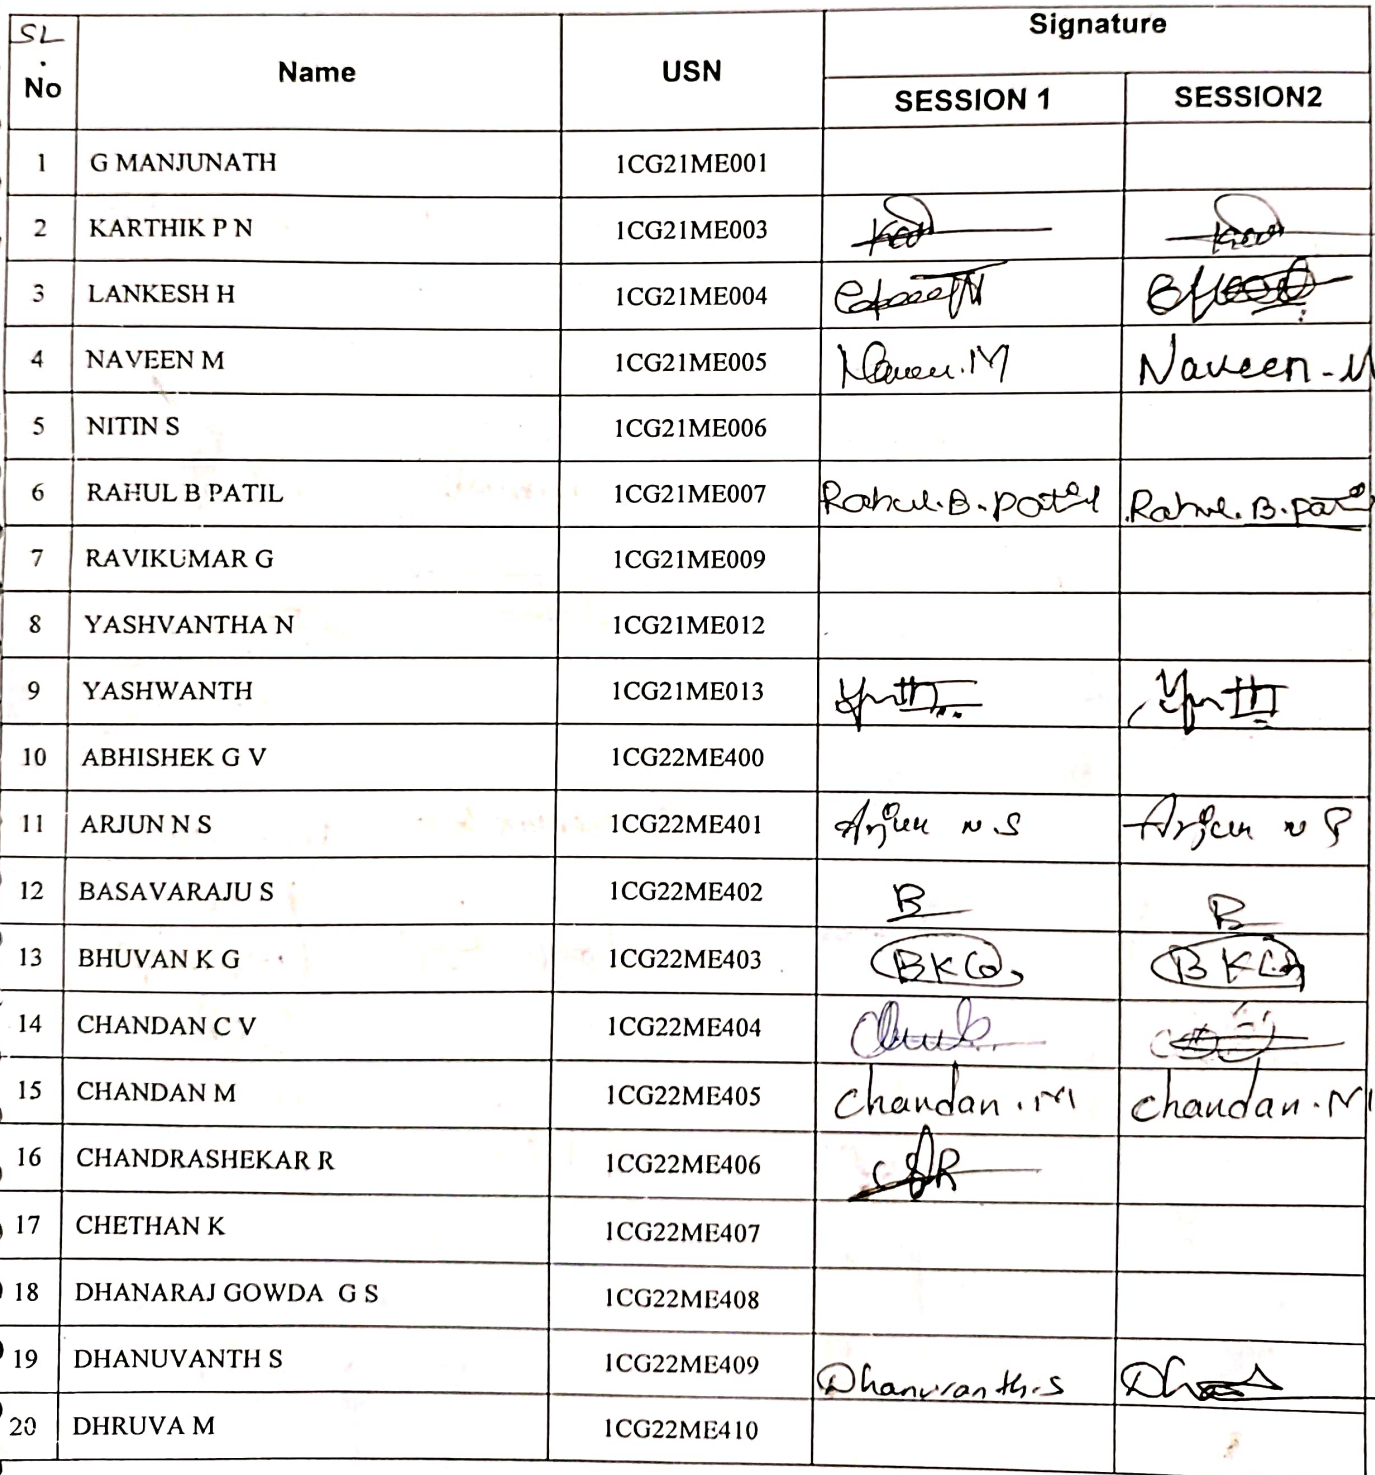 SL
.
No Name USN Signature
SESSION 1 SESSION2
1 G MANJUNATH 1CG21ME001
2 KARTHIK P N 1CG21ME003
3 LANKESH H 1CG21ME004
4 NAVEEN M 1CG21ME005 Naveen.M Naveen-M
5 NITIN S 1CG21ME006
6 RAHUL B PATIL 1CG21ME007 Rahul.B.patil Rahul.B.patil
7 RAVIKUMAR G 1CG21ME009
8 YASHVANTHA N 1CG21ME012
9 YASHWANTH 1CG21ME013
10 ABHISHEK G V 1CG22ME400
11 ARJUN N S 1CG22ME401 Arjun N S Arjun N S
12 BASAVARAJU S 1CG22ME402 B B
13 BHUVAN K G 1CG22ME403 BKG BKG
14 CHANDAN C V 1CG22ME404
15 CHANDAN M 1CG22ME405 Chandan.M Chandan.M
16 CHANDRASHEKAR R 1CG22ME406
17 CHETHAN K 1CG22ME407
18 DHANARAJ GOWDA G S 1CG22ME408
19 DHANUVANTH S 1CG22ME409 Dhanuvanth.S
20 DHRUVA M 1CG22ME410